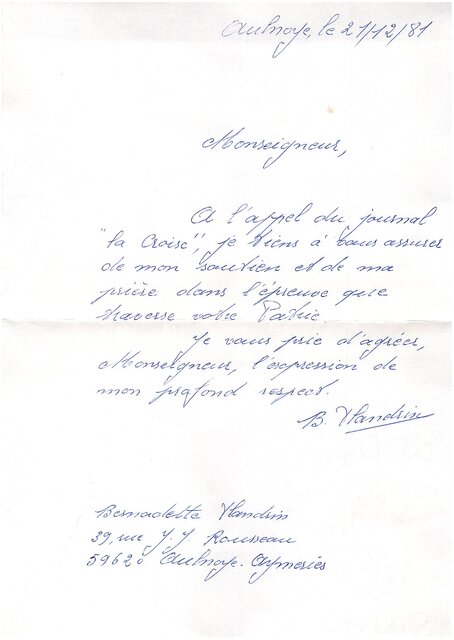 Aulnoye, le 21/12/81
Monseigneur,
A l'appel du journal
"la Croix", je tiens à vous assurer
de mon soutien et de ma
prière dans l'épreuve que
traverse votre Patrie.
Je vous prie d'agréer,
Monseigneur, l'expression de
mon profond respect.
B. Flandrin
Bernadette Flandrin
39, rue J.J. Rousseau
59620 Aulnoye-Aymeries